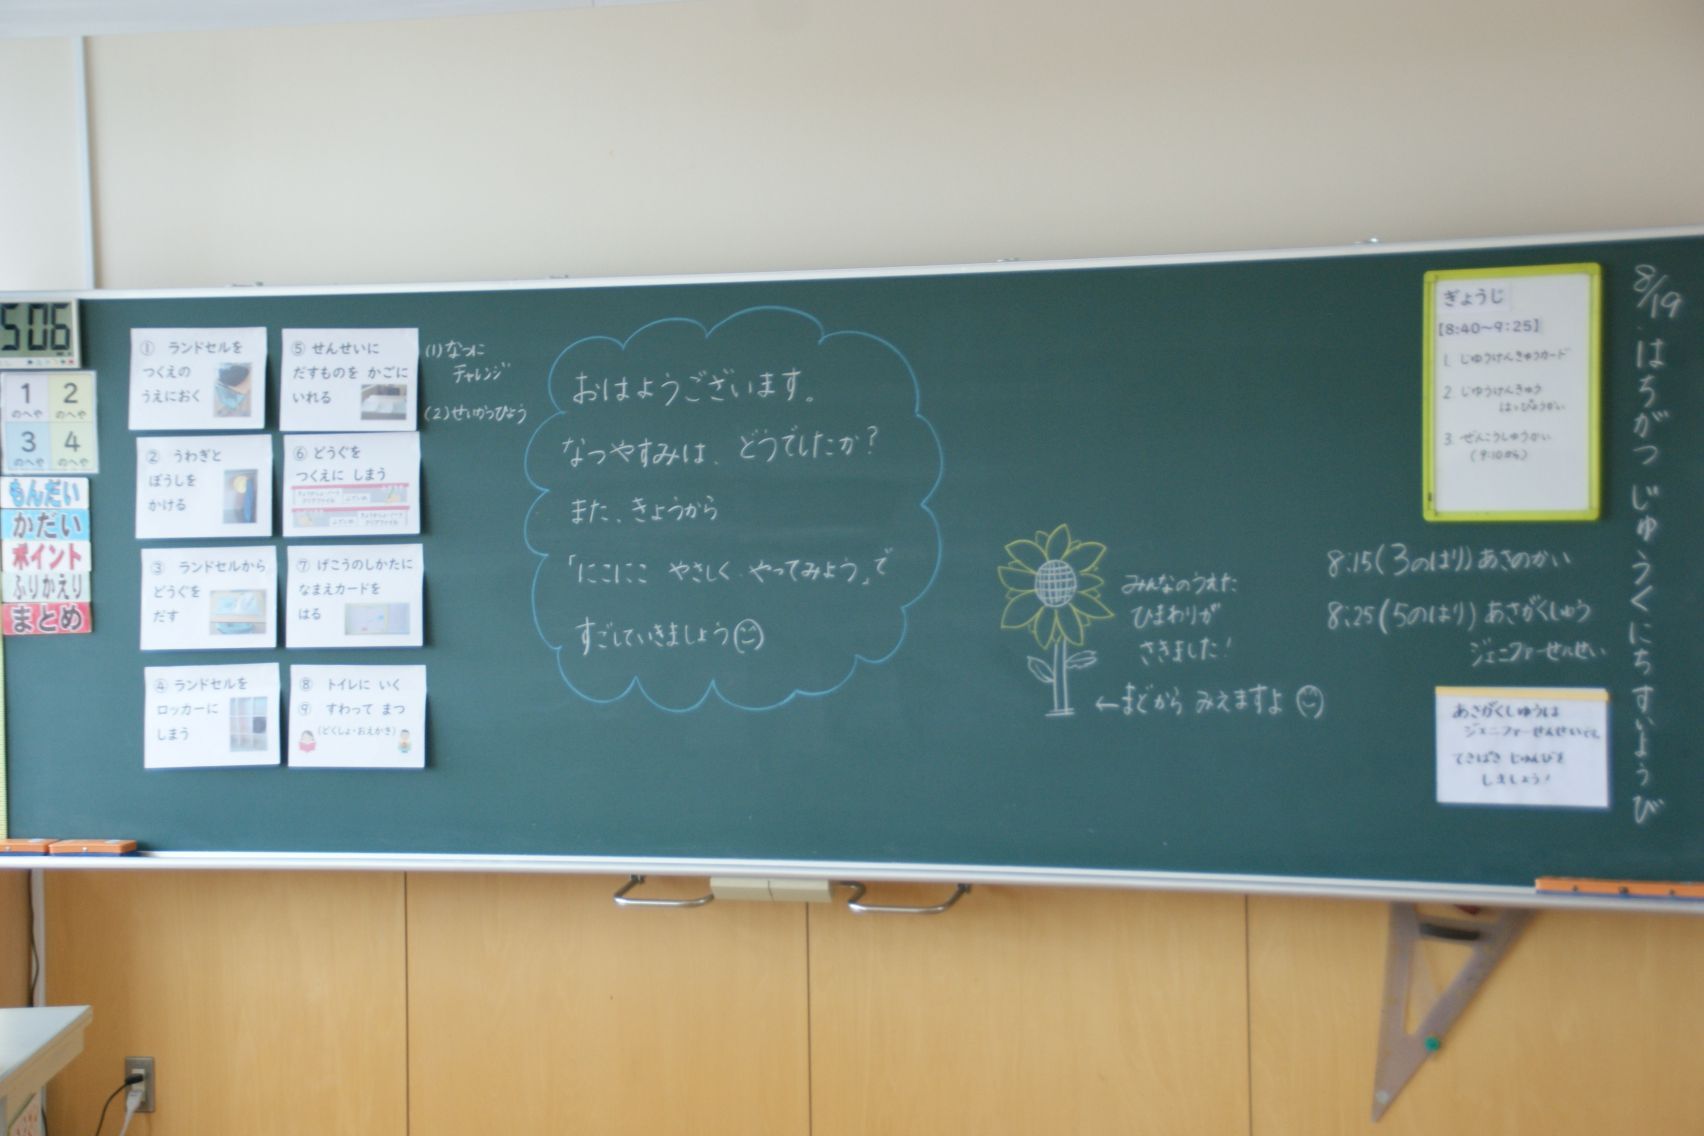 506
1 2
のへや のへや
3 4
のへや のへや
もんだい
かだい
ポイント
ふりかえり
まとめ
① ランドセルを
つくえの
うえにおく
② うわぎと
ぼうしを
かける
③ ランドセルから
どうぐを
だす
④ ランドセルを
ロッカーに
しまう
⑤ せんせいに
だすものを かごに
いれる
⑥ どうぐを
つくえに しまう
⑦ げこうのしかたに
なまえカードを
はる
⑧ トイレに いく
⑨ すわって まつ
(どくしょ・おえかき)
(1)なつに
チャレンジ
(2)せいかつひょう
おはようございます。
なつやすみは、どうでしたか?
また、きょうから
「にこにこ やさしく やってみよう」で
すごしていきましょう
みんなのうえた
ひまわりが
さきました!
←まどから みえますよ
ぎょうじ
【8:40〜9:25】
1. じゆうけんきゅうカード
2 じゆうけんきゅう
はっぴょうかい
3. ぜんこうしゅうかい
(9:10から)
8:15(3のはり)あさのかい
8:25(5のはり)あさがくしゅう
ジェニファーせんせい
あさがくしゅうは
ジェニファーせんせいです。
てきぱき じゅんびを
しましょう!
8/19
はちがつ じゅうくにち すいようび